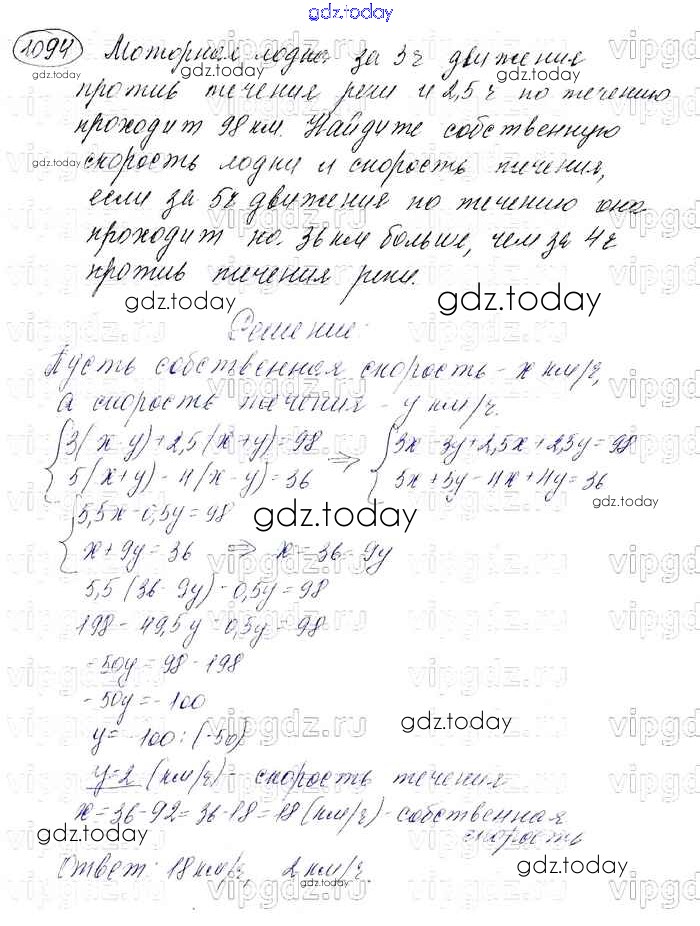 gdz.today
1094 Моторная лодка за 3ч движения
против течения реки и 2,5ч по течению
проходит 98 км. Найдите собственную
скорость лодки и скорость течения,
если за 5ч движения по течению она
проходит на 36 км больше, чем за 4ч
против течения реки.
gdz.today
Решение:
Пусть собственная скорость - х км/ч,
а скорость течения - у км/ч.
{3(х-у)+2,5(х+у)=98 ⇒ {3х-3у+2,5х+2,5у=98
{5(х+у)-4(х-у)=36 {5х+5у-4х+4у=36
{5,5х-0,5у=98 gdz.today
{х+9у=36 ⇒ х=36-9у
5,5(36-9у)-0,5у=98
198-49,5у-0,5у=98
-50у=98-198
-50у=-100
у=-100:(-50)
gdz.today
у=2 (км/ч) - скорость течения
х=36-9·2=36-18=18 (км/ч) - собственная
скорость
gdz.today
Ответ: 18 км/ч, 2 км/ч.
gdz.today
vipgdz.ru